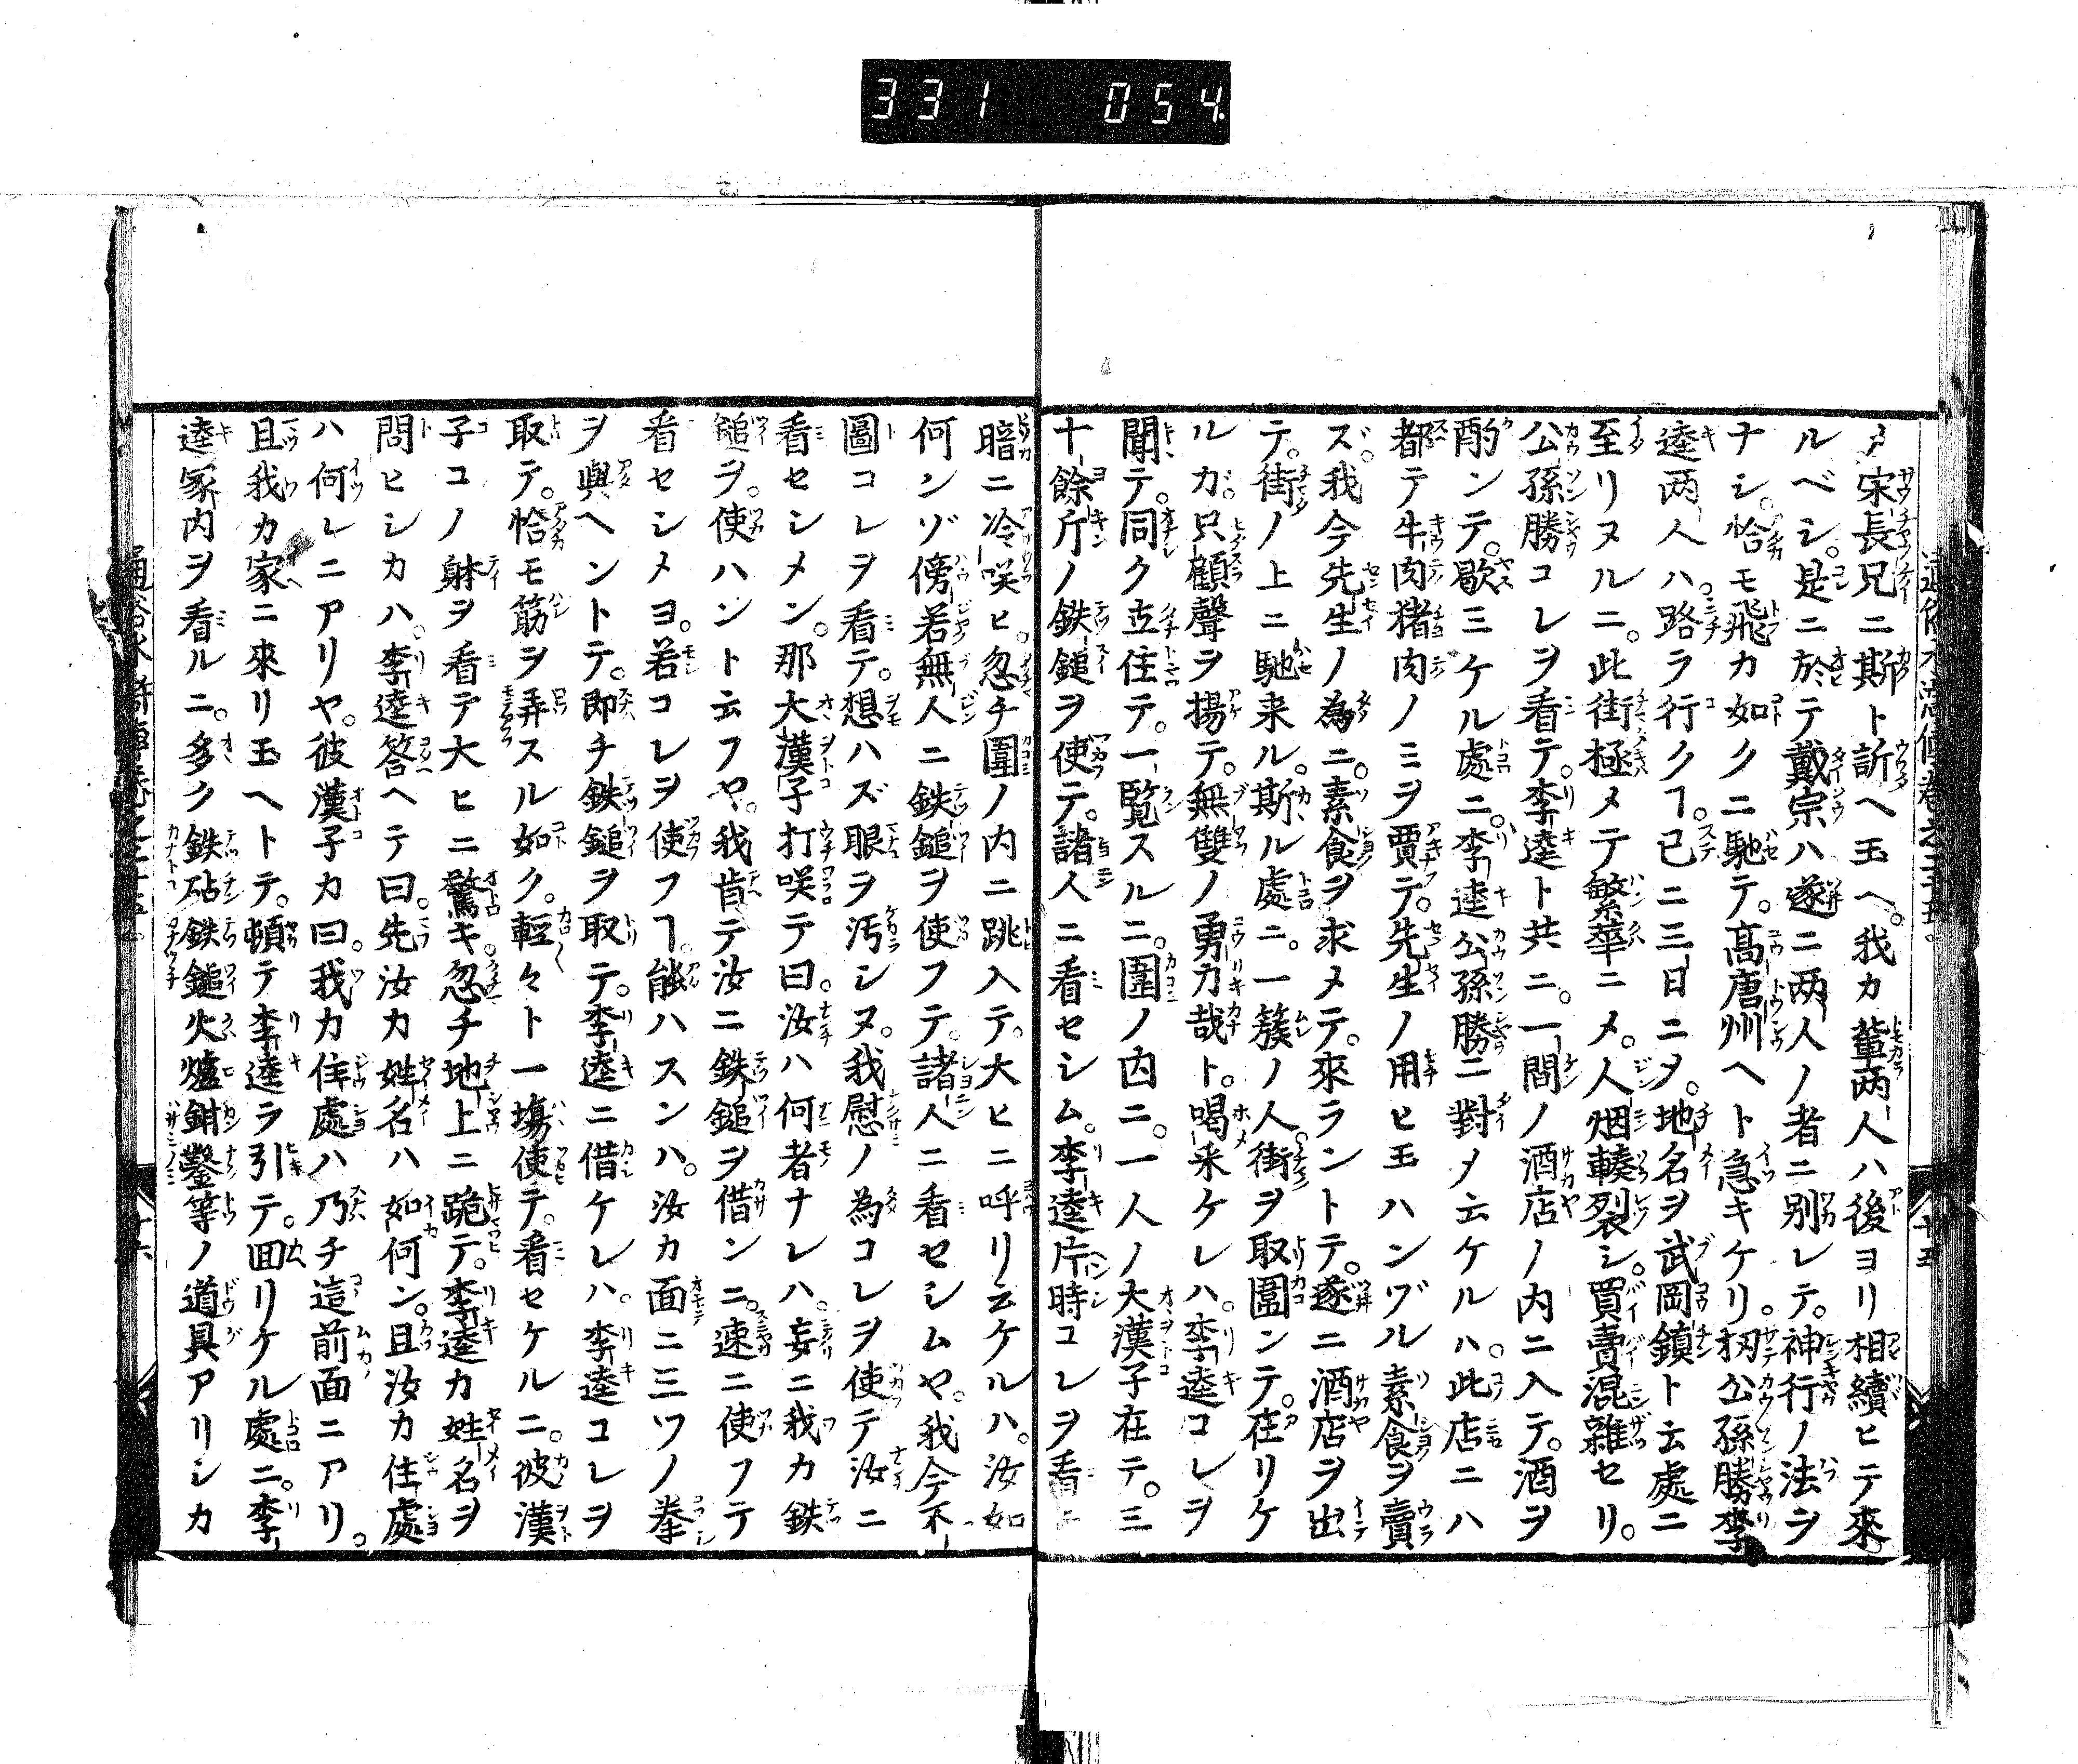 331 054
〆宋長兄ニ斯ト訴ヘ玉ヘ。我カ輩両人ハ後ヨリ相續ヒテ來
ルベシ。是ニ於テ戴宗ハ遂ニ两人ノ者ニ別レテ。神行ノ法ヲ
ナシ。恰モ飛カ如クニ馳テ。髙唐州ヘト急キケリ。扨公孫勝李
逵两人ハ。路ラ行クヿ。已ニ三日ニ〆。地名ヲ武岡鎮ト云處ニ
至リヌルニ。此街極メテ繁華ニメ。人烟輳裂シ。買賣混雜セリ。
公孫勝コレヲ看テ。李逵ト共ニ。一間ノ酒店ノ内ニ入テ。酒ヲ
酌ンテ。歇ミケル處ニ。李逵公孫勝ニ對メ云ケルハ。此店ニハ
都テ牛肉猪肉ノミヲ賈テ。先生ノ用ヒ玉ハンヅル素食ヲ賣
ズ。我今先生ノ為ニ。素食ヲ求メテ。來ラントテ。遂ニ酒店ヲ出
テ。街ノ上ニ馳来ル。斯ル處ニ。一簇ノ人。街ヲ取圍ンテ。在リケ
ルカ。只顧聲ヲ揚テ。無雙ノ勇力哉ト。喝采ケレハ。李逵コレヲ
聞テ。同ク立住テ。一覧スルニ。圍ノ内ニ。一人ノ大漢子在テ。三
十餘斤ノ鉄鎚ヲ使テ。諸人ニ看セシム。李逵片時コレヲ看ニ
暗ニ冷咲ヒ。忽チ圍ノ内ニ跳入テ。大ヒニ呼リ云ケルハ。汝如
何ンゾ傍若無人ニ鉄鎚ヲ使フテ。諸人ニ看セシムヤ。我今不
圖コレヲ看テ。想ハズ眼ヲ汚シヌ。我慰ノ為コレヲ使テ汝ニ
看セシメン。那大漢子打咲テ曰。汝ハ何者ナレハ。妄ニ我カ鉄
鎚ヲ。使ハント云フヤ。我肯テ汝ニ鉄鎚ヲ借ンニ。速ニ使フテ
看セシメヨ。若コレヲ使フヿ。能ハスンハ。汝カ面ニ三ツノ拳
ヲ與ヘントテ。即チ鉄鎚ヲ取テ。李逵ニ借ケレハ。李逵コレヲ
取テ。恰モ筋ヲ弄スル如ク。輕々ト一塲使テ。看セケルニ。彼漢
子コノ躰ヲ看テ大ヒニ驚キ。忽チ地上ニ跪テ。李逵カ姓名ヲ
問ヒシカハ。李逵答ヘテ曰。先汝カ姓名ハ如何ン。且汝カ住處
ハ何レニアリヤ。彼漢子カ曰。我カ住處ハ乃チ這前面ニアリ。
且我カ家ニ來リ玉ヘトテ。頓テ李逵ラ引テ。囬リケル處ニ。李
逵家内ヲ看ルニ。多ク鉄砧鉄鎚火爐鉗鑿等ノ道具アリシカ